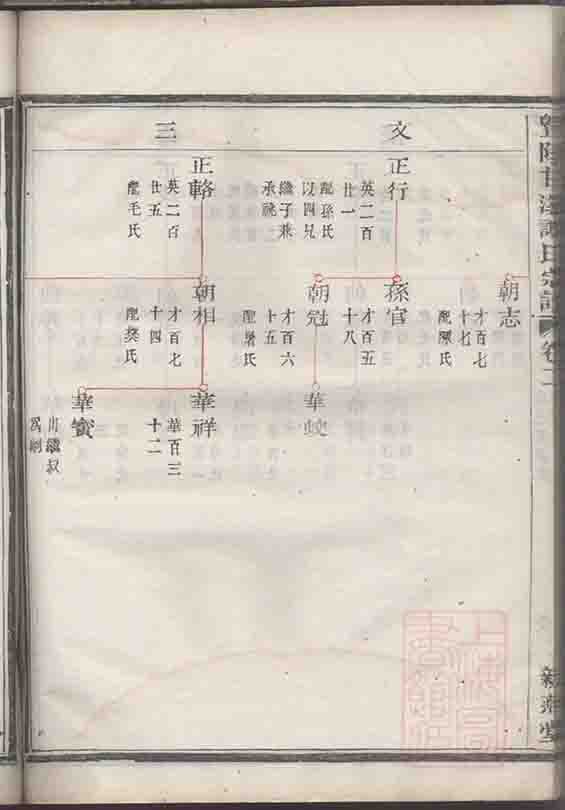 氏宗譜
卷二
文
三
朝志
才百七
十七
配陳氏
正行
英二百
廿一
配孫氏
以四兄
繼子兼
承祧
孫官
才百五
十八
朝冠
才百六
十五
配屠氏
華
正輅
英二百
廿五
配毛氏
朝相
才百七
十四
配樊氏
華祥
華百三
十二
華寶
出繼叔
爲嗣
堂
上海